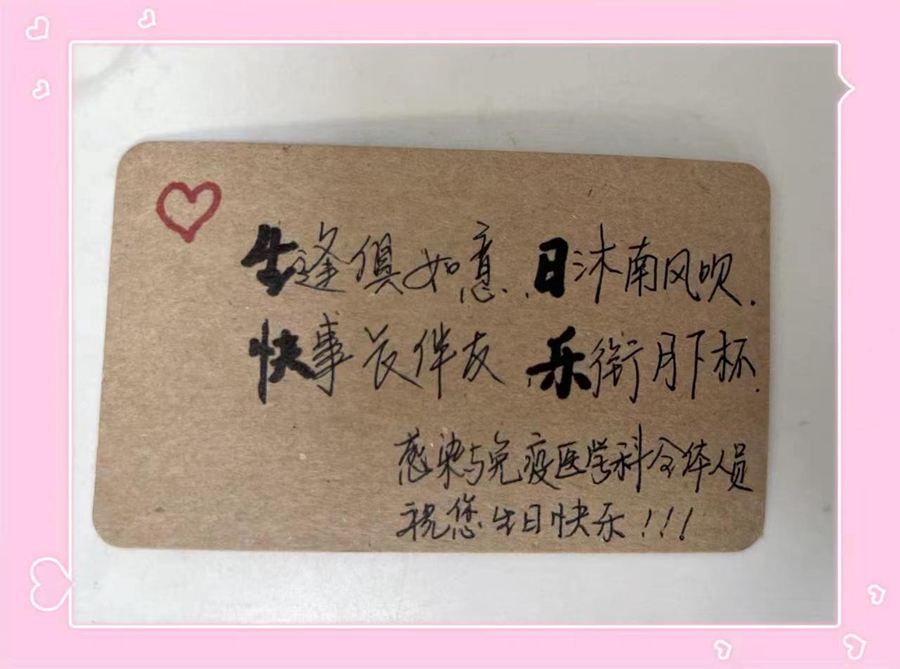 生逢俱如意.日沐南风吹.
快事长伴友 乐衔月下杯.
感染与免疫医学科全体人员
祝您生日快乐!!!